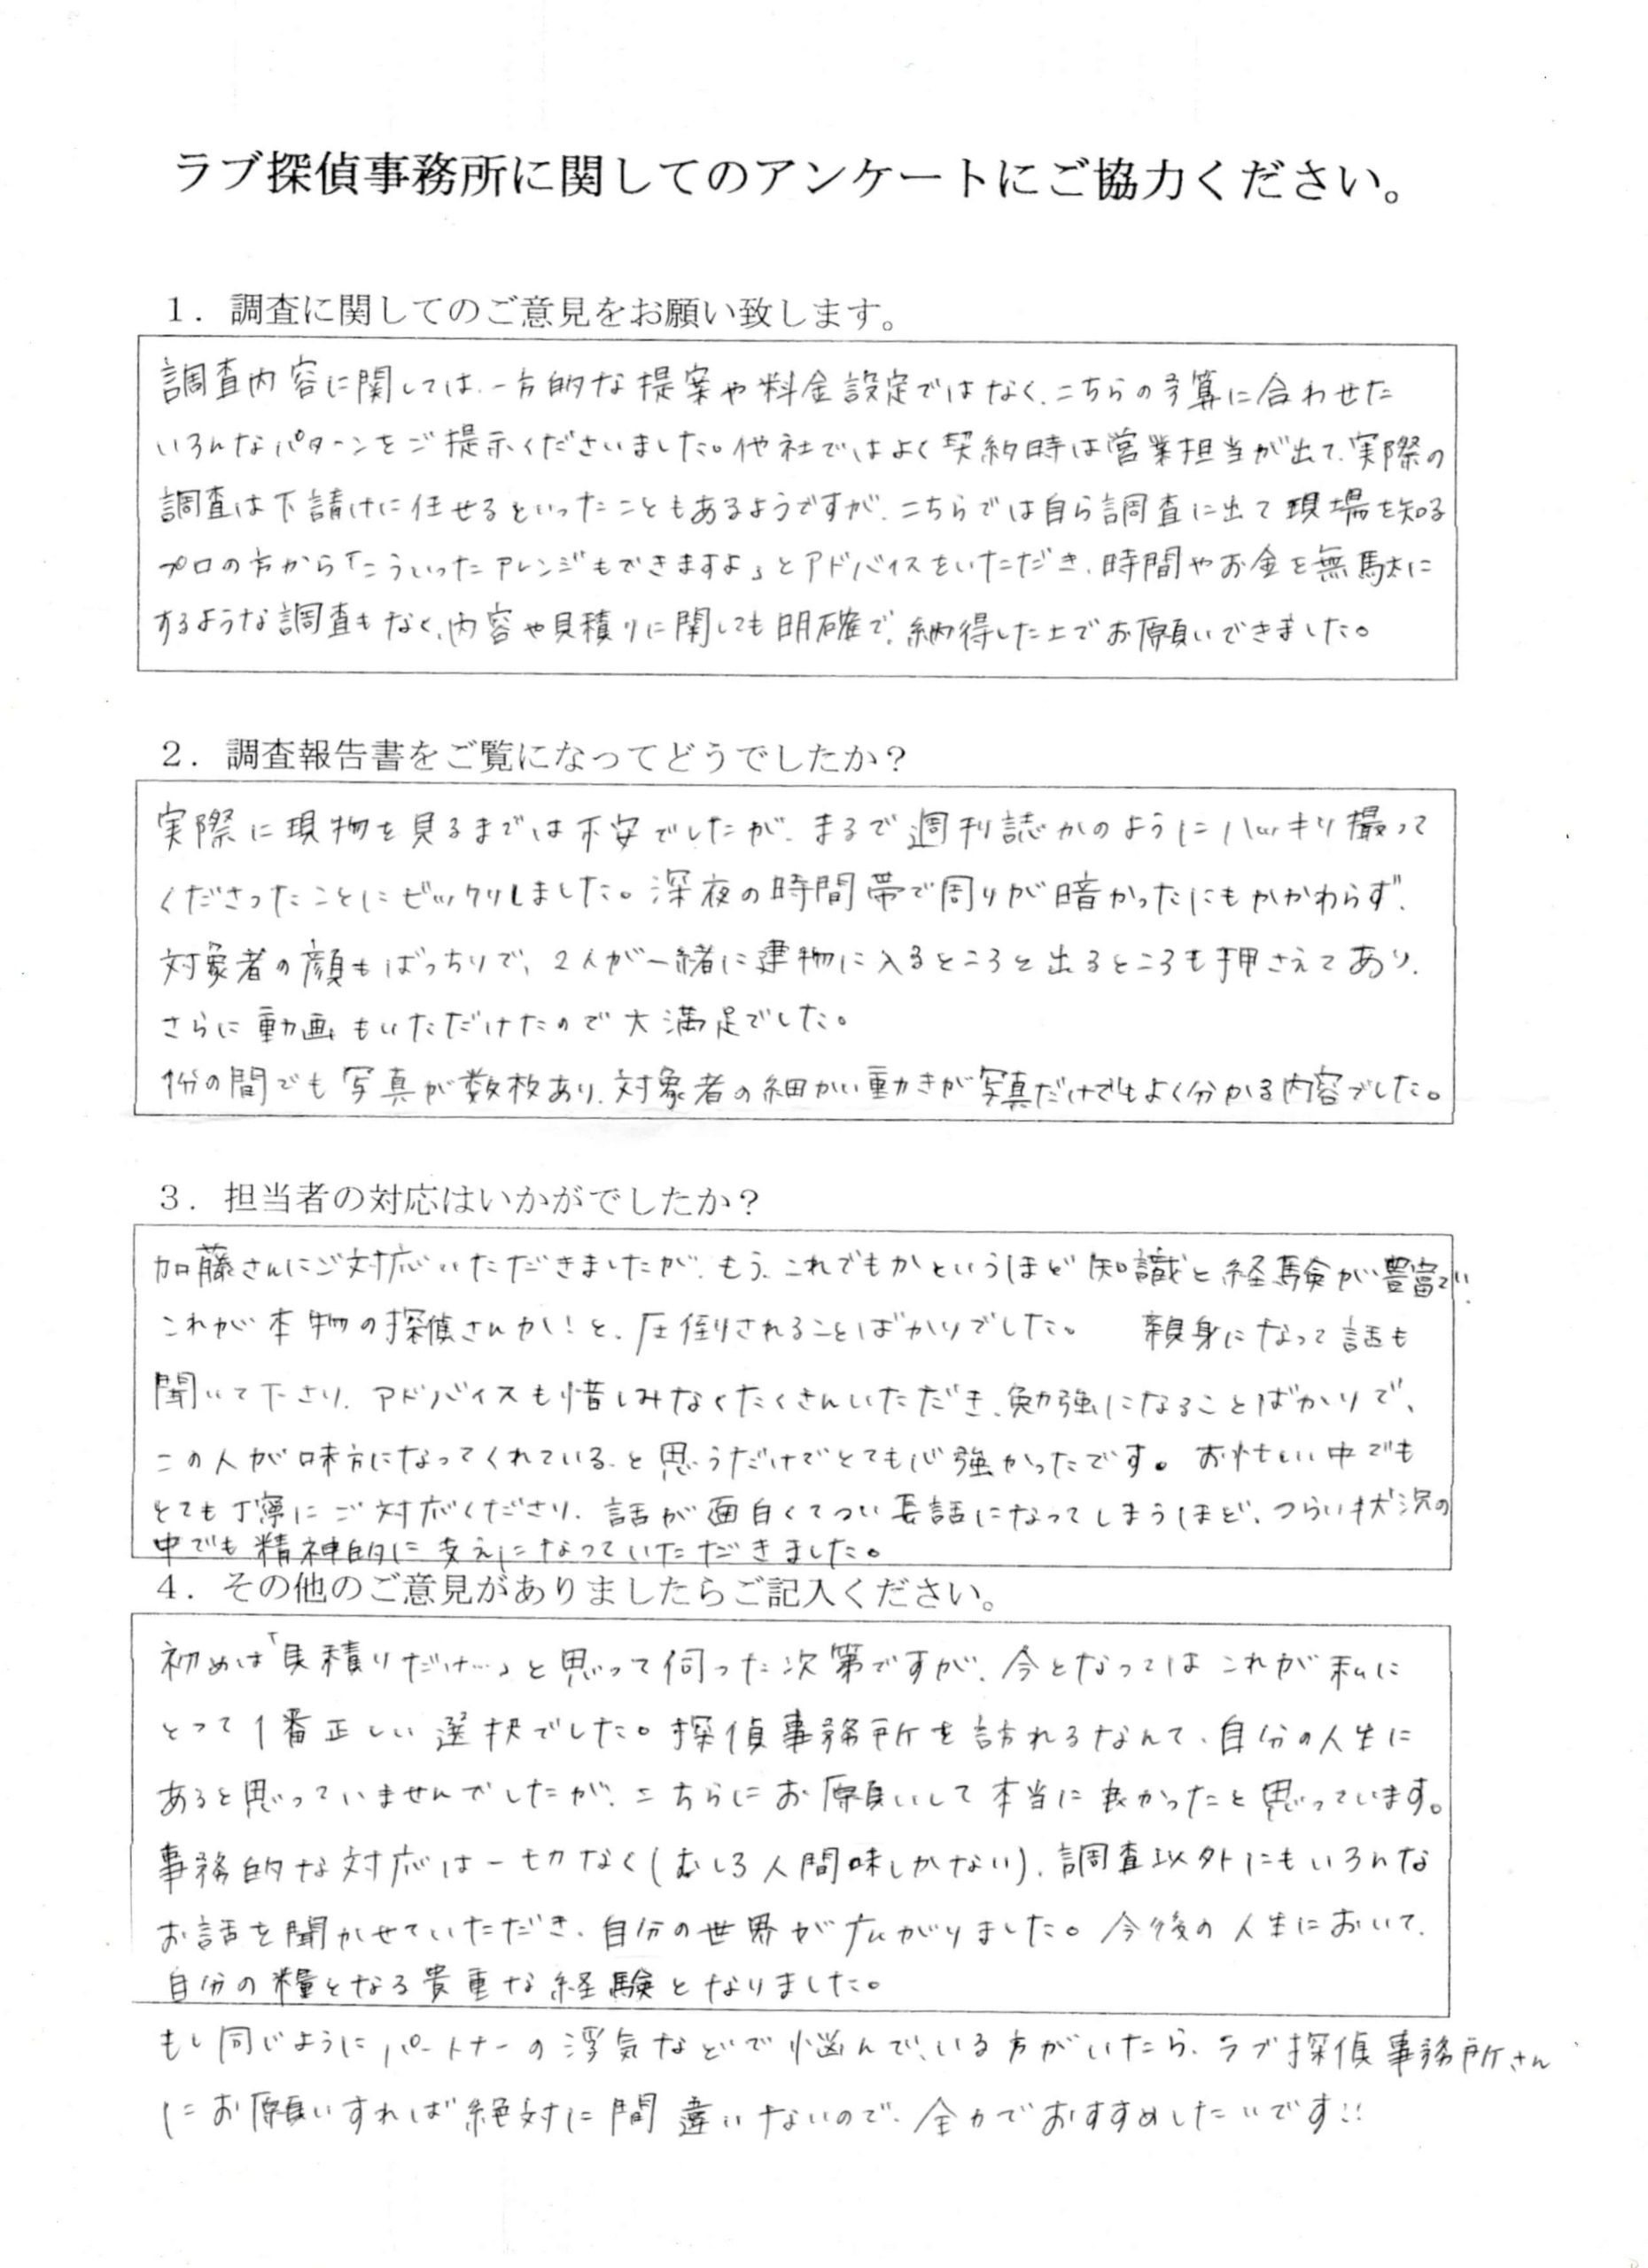 ラブ探偵事務所に関してのアンケートにご協力ください。
1．調査に関してのご意見をお願い致します。
調査内容に関しては、一方的な提案や料金設定ではなく、こちらの予算に合わせた
いろんなパターンをご提示くださいました。他社ではよく契約時は営業担当が出て、実際の
調査は下請けに任せるといったこともあるようですが、こちらでは自ら調査に出て現場を知る
プロの方から「こういったアレンジもできますよ」とアドバイスをいただき、時間やお金を無駄に
するような調査もなく、内容や見積りに関しても明確で、納得した上でお願いできました。
2．調査報告書をご覧になってどうでしたか？
実際に現物を見るまでは不安でしたが、まるで週刊誌かのようにハッキリ撮って
くださったことにビックリしました。深夜の時間帯で周りが暗かったにもかかわらず、
対象者の顔もばっちりで、2人が一緒に建物に入るところと出るところも押さえてあり、
さらに動画もいただけたので大満足でした。
1分の間でも写真が数枚あり、対象者の細かい動きが写真だけでもよく分かる内容でした。
3．担当者の対応はいかがでしたか？
加藤さんにご対応いただきましたが、もう、これでもかというほど知識と経験が豊富で、
これが本物の探偵さんか！と、圧倒されることばかりでした。 親身になって話も
聞いて下さり、アドバイスも惜しみなくたくさんいただき、勉強になることばかりで、
この人が味方になってくれている、と思うだけでとても心強かったです。お忙しい中でも
とても丁寧にご対応くださり、話が面白くてつい長話になってしまうほど、つらい状況の
中でも精神的に支えになっていただきました。
4．その他のご意見がありましたらご記入ください。
初めは「見積りだけ…」と思って伺った次第ですが、今となってはこれが私に
とって1番正しい選択でした。探偵事務所を訪れるなんて、自分の人生に
あると思っていませんでしたが、こちらにお願いして本当に良かったと思っています。
事務的な対応は一切なく(むしろ人間味しかない)、調査以外にもいろんな
お話を聞かせていただき、自分の世界が広がりました。今後の人生において、
自分の糧となる貴重な経験となりました。
もし同じようにパートナーの浮気などで悩んでいる方がいたら、ラブ探偵事務所さん
にお願いすれば絶対に間違いないので、全力でおすすめしたいです!!